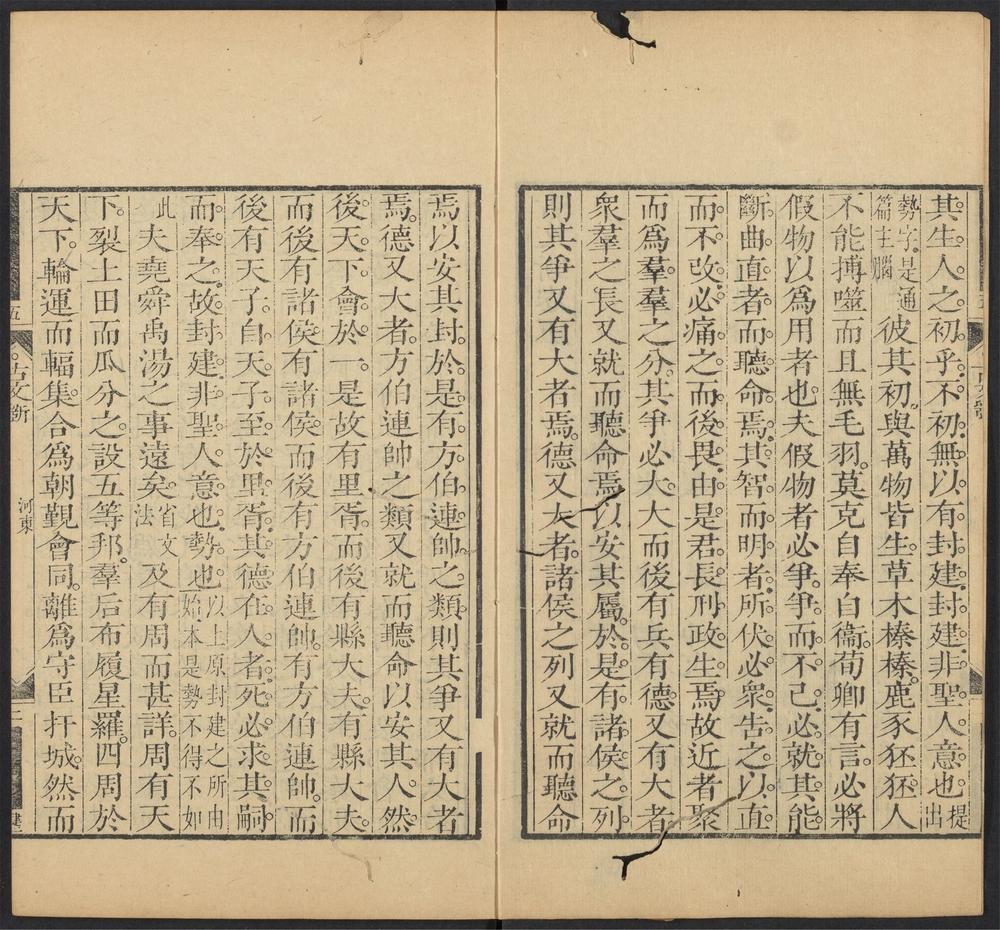 其生人之初乎不初無以有封建封建非聖人意也提出
勢字是通篇主腦彼其初與萬物皆生草木榛榛鹿豕狉狉人
不能搏噬而且無毛羽莫克自奉自衞荀卿有言必將
假物以爲用者也夫假物者必爭爭而不已必就其能
斷曲直者而聽命焉其智而明者所伏必衆告之以直
而不改必痛之而後畏由是君長刑政生焉故近者聚
而爲羣羣之分其爭必大大而後有兵有德又有大者
衆羣之長又就而聽命焉以安其屬於是有諸侯之列
則其爭又有大者焉德又大者諸侯之列又就而聽命
焉以安其封於是有方伯連帥之類則其爭又有大者
焉德又大者方伯連帥之類又就而聽命以安其人然
後天下會於一是故有里胥而後有縣大夫有縣大夫
而後有諸侯有諸侯而後有方伯連帥有方伯連帥而
後有天子自天子至於里胥其德在人者死必求其嗣
而奉之故封建非聖人意也勢也以上原封建之所由始本是勢不得不如
此夫堯舜禹湯之事遠矣省文法及有周而甚詳周有天
下裂土田而瓜分之設五等邦羣后布履星羅四周於
天下輪運而輻集合爲朝覲會同離爲守臣扞城然而
五
古文析
河東